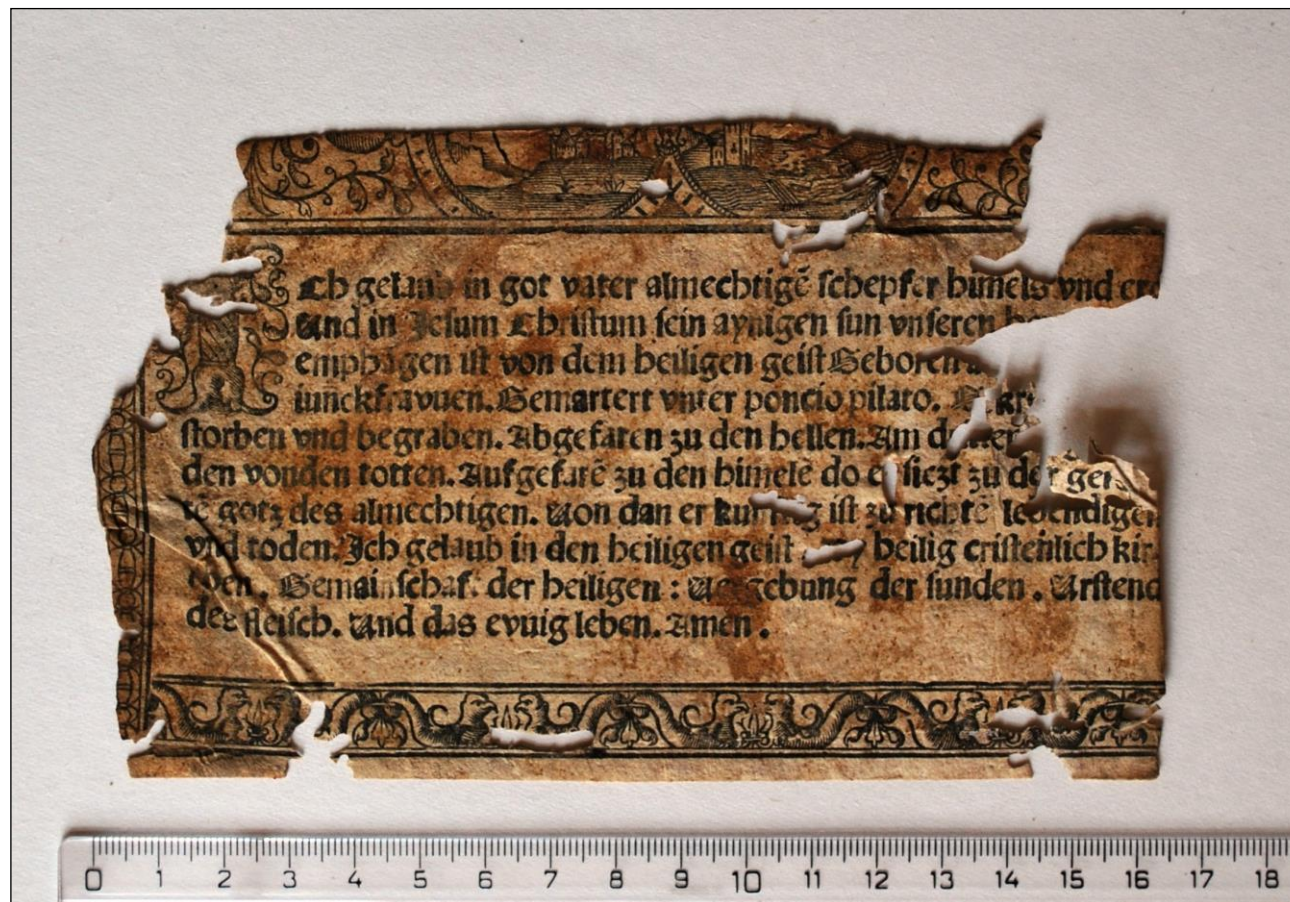 Ich gelaub in got vater almechtigẽ schepfer himels vnd
Und in Jesum Christum sein aynigen sun vnseren
empfhagen ist von dem heiligen geist Geboren
iunckfravuen. Gemartert vnter poncio pilato.
storben vnd begraben. Abgefaren zu den hellen. Am
den vonden totten. Aufgefarẽ zu den himelẽ do er siczt zu der
tẽ gotz des almechtigen. Von dan er ist zu richtẽ lebendigen
vnd toden. Ich gelaub in den heiligen geist heilig cristenlich kir
chen. Gemainschaft der heiligen: Vergebung der sunden. Urstend
des fleisch. Und das evuig leben. Amen.
0 1 2 3 4 5 6 7 8 9 10 11 12 13 14 15 16 17 18